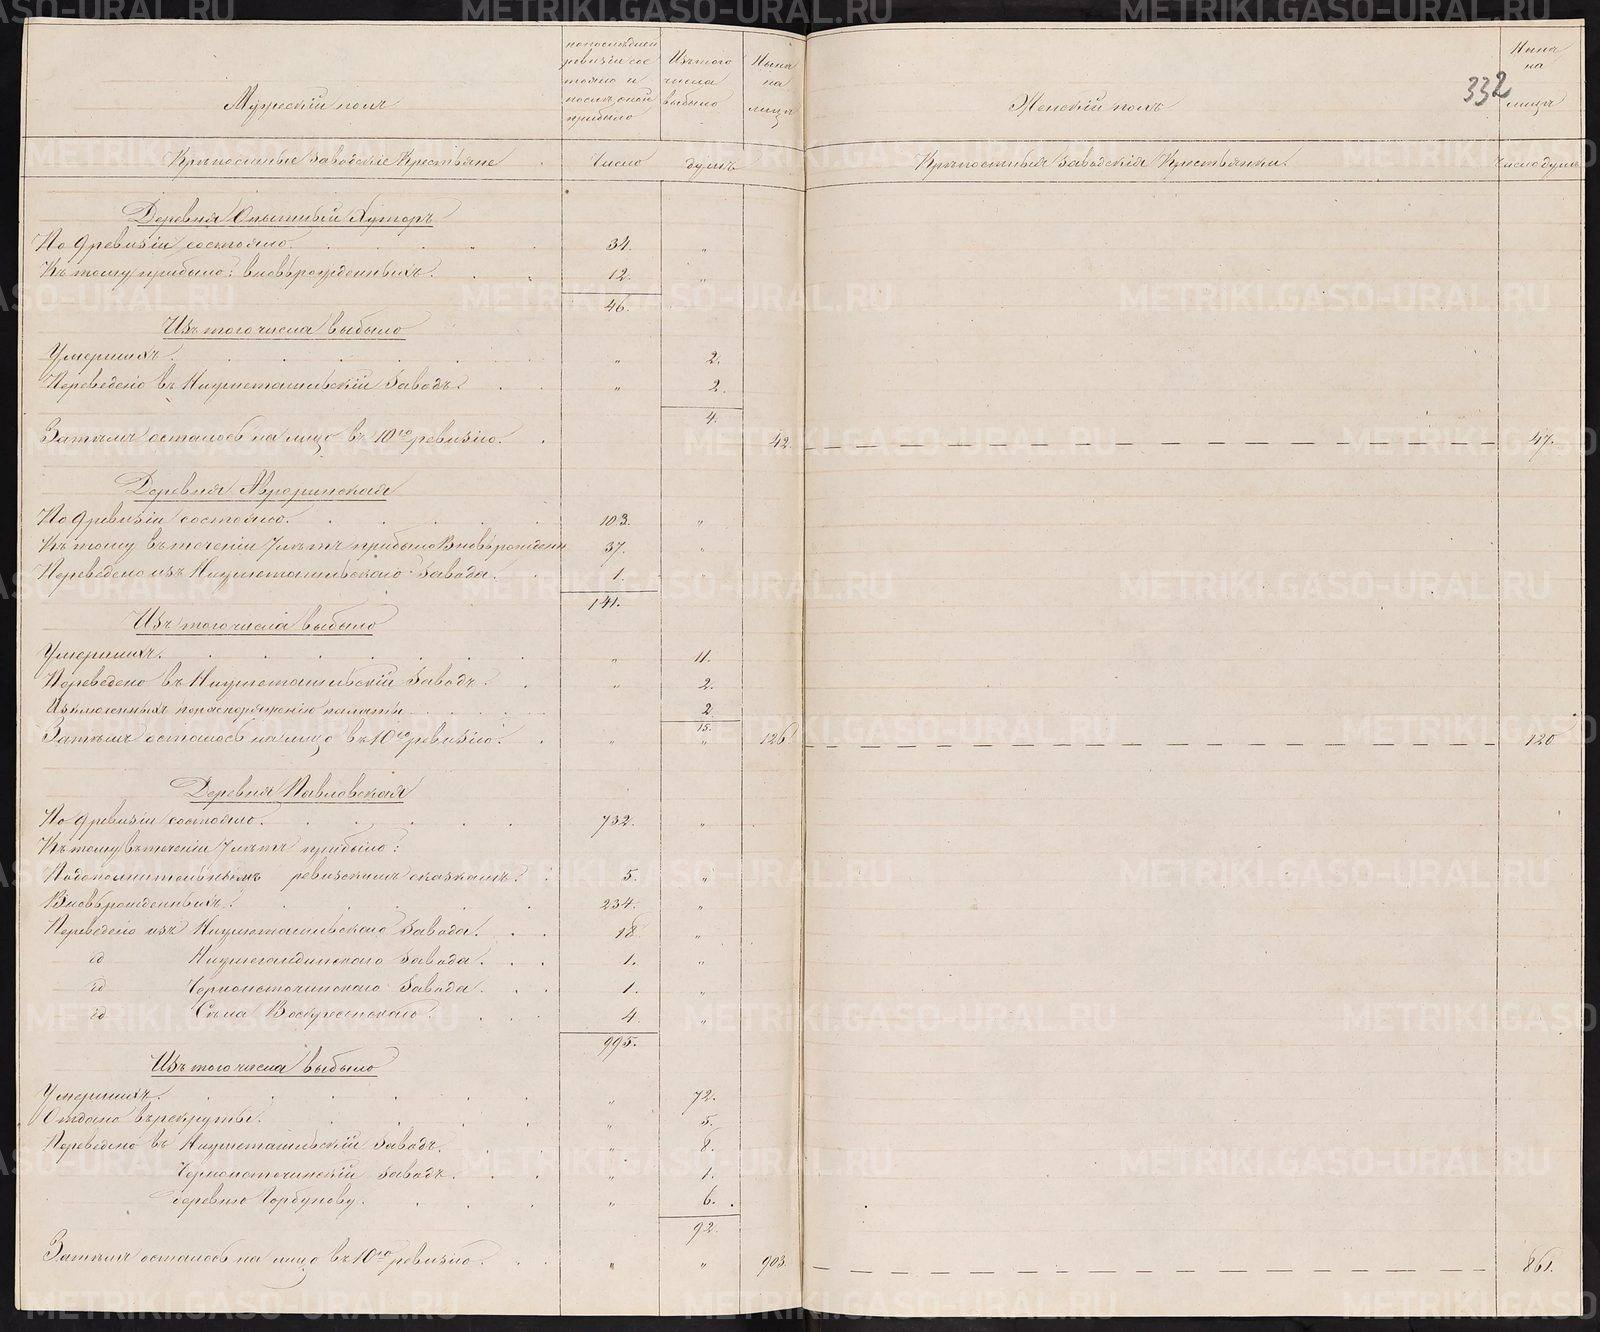 332
Мужескій полъ
по последней ревизіи состояло и после оной прибыло
Изъ того числа выбыло
Ныне на лицо
Женскій полъ
Ныне на лицо
Крепостные Заводскіе Крестьяне
Число
душъ
Крепостныя Заводскія Крестьянки.
Число душъ
Деревня Опытный Хуторъ
По 9 ревизіи состояло. 34. "
Къ тому прибыло: вновьрожденныхъ. 12. "
46.
Изъ того числа выбыло
Умершихъ. " 2.
Переведено въ Нижнетагильскій Заводъ. " 2.
4.
Затемъ осталось на лицо въ 10ю ревизію. 42. 47.
Деревня Авроринская
По 9 ревизіи состояло. 103. "
Къ тому въ теченіи 7 летъ прибыло вновьрожденн 37. "
Переведено изъ Нижнетагильскаго Завода. 1.
141.
Изъ того числа выбыло
Умершихъ. " 11.
Переведено въ Нижнетагильскій Заводъ. " 2.
Исключенныхъ по распоряженію палаты 2
15.
Затемъ осталось на лицо въ 10ю ревизію. " " 126 120
Деревня Павловская
По 9 ревизіи состояло. 732. "
Къ тому въ теченіи 7 летъ прибыло:
По дополнительнымъ ревизскимъ сказкамъ. 5. "
Вновьрожденныхъ. 234. "
Переведено изъ Нижнетагильскаго Завода. 18 "
id Нижнесалдинскаго Завода. 1. "
id Черноисточинскаго Завода. 1. "
id Села Воскресенскаго. 4. "
995.
Изъ того числа выбыло
Умершихъ. " 72.
Отдано въ рекруты. " 5.
Переведено въ Нижнетагильскій Заводъ. " 8.
Черноисточинскій Заводъ. " 1.
деревню Горбунову. " 6.
92.
Затемъ осталось на лицо въ 10ю ревизію. " " 903. 861.
METRIKI.GASO-URAL.RU